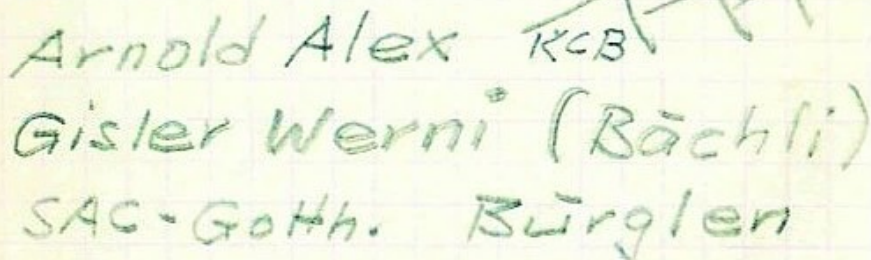 Arnold Alex KCB
Gisler Werni (Bächli)
SAC-Gotth. Bürglen